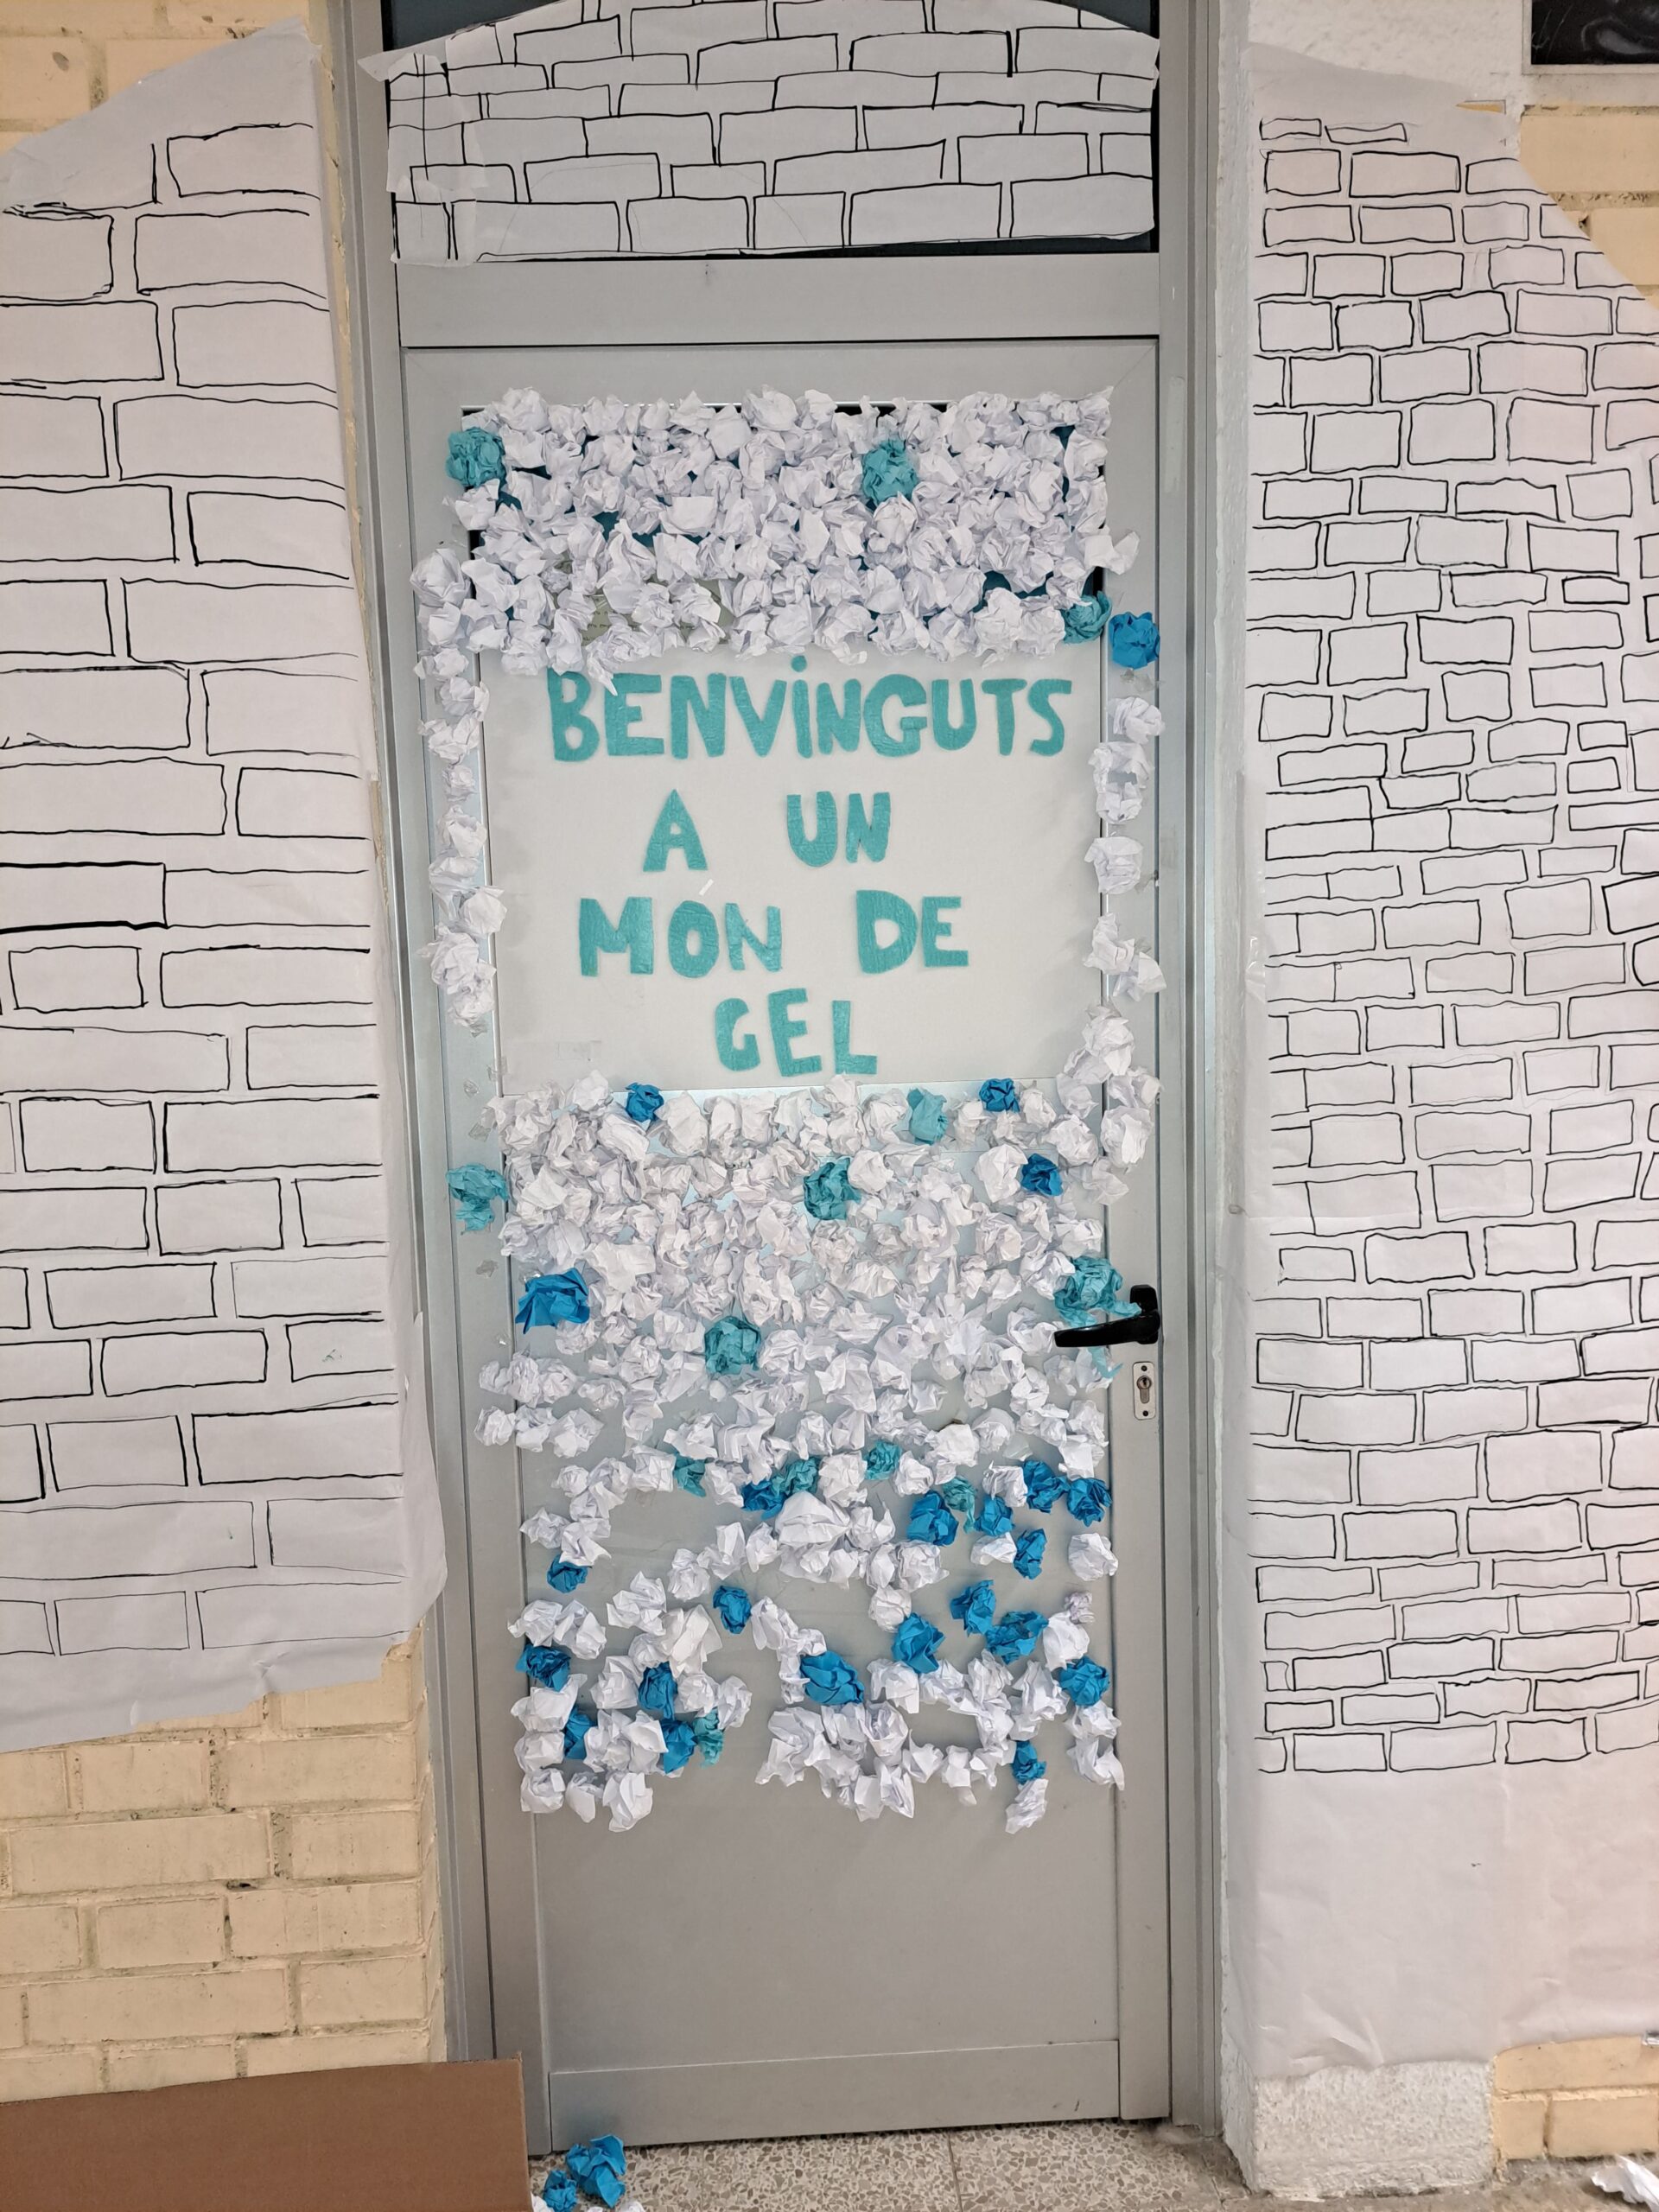 BENVINGUTS
A UN
MÓN DE
GEL